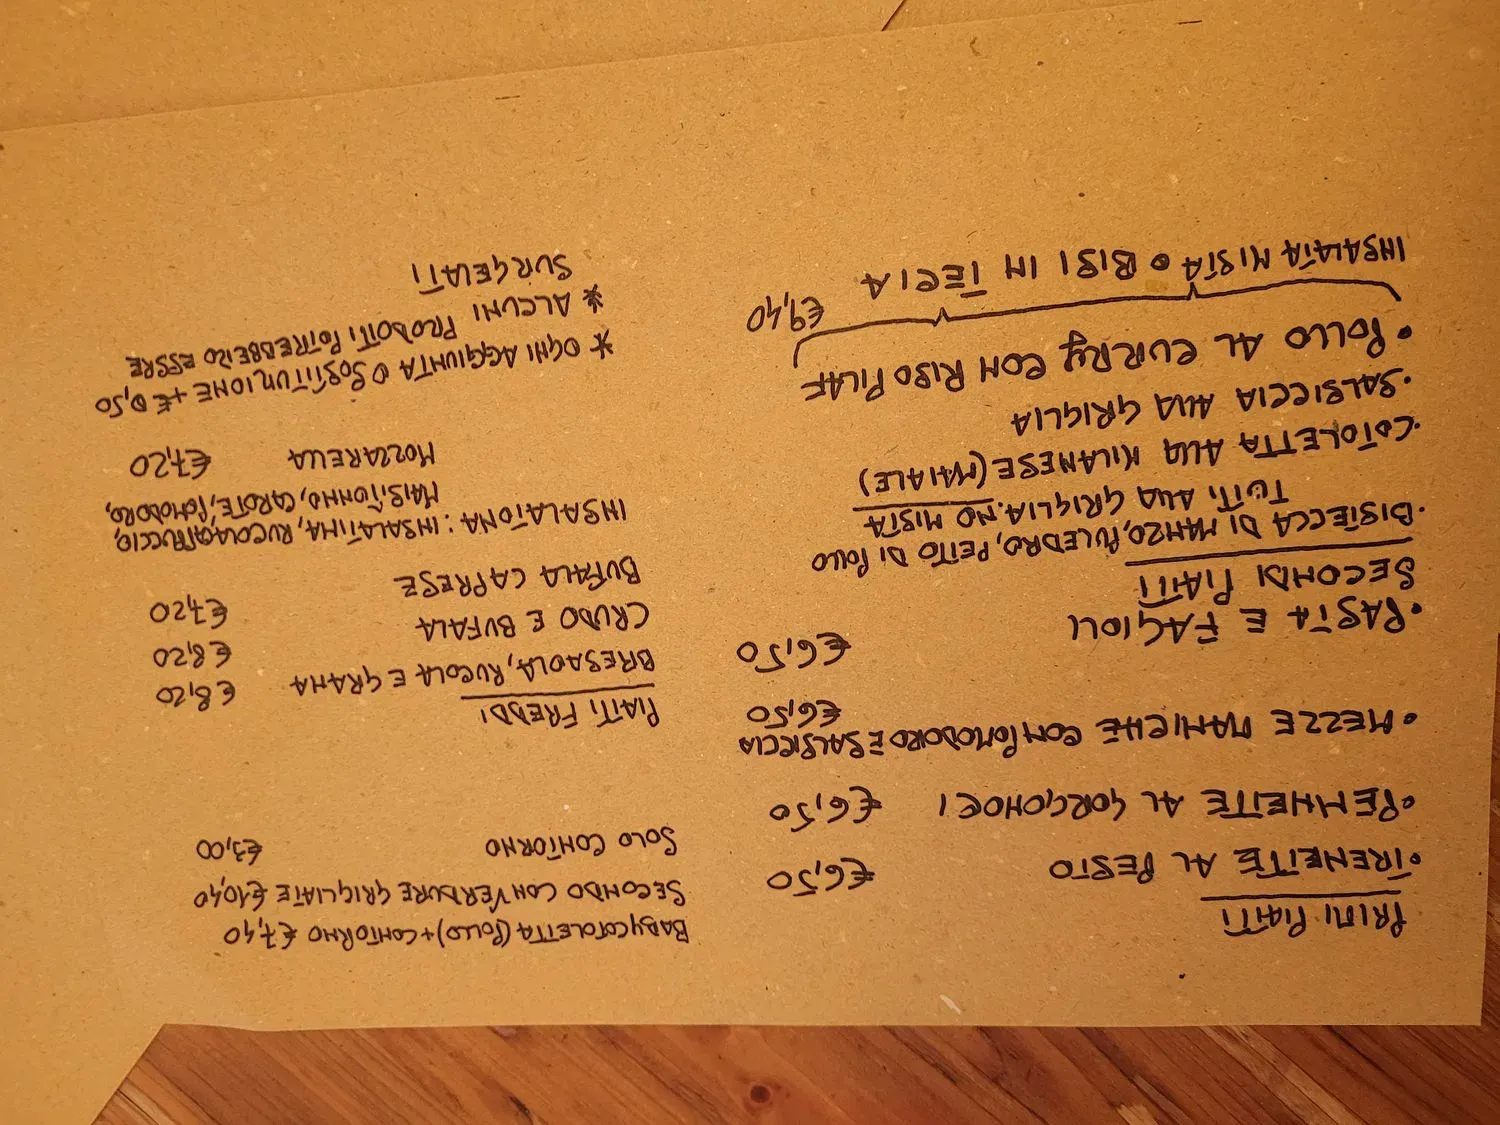 PRIMI PIATTI
• TRENETTE AL PESTO €6,50
• PENNETTE AL GORGONOCI €6,50
• MEZZE MANICHE CON POMODORO E SALSICCIA
€6,50
• PASTA E FAGIOLI €6,50
SECONDI PIATTI
• BISTECCA DI MANZO, PULEDRO, PETTO DI POLLO
TUTTI ALLA GRIGLIA. NO MISTA
• COTOLETTA ALLA MILANESE (MAIALE)
• SALSICCIA ALLA GRIGLIA
• POLLO AL CURRY CON RISO PILAF
€9,40
INSALATA MISTA O BISI IN TECIA
BABY COTOLETTA (POLLO) + CONTORNO €7,40
SECONDO CON VERDURE GRIGLIATE €10,40
SOLO CONTORNO €3,00
PIATTI FREDDI
BRESAOLA, RUCOLA E GRANA €8,20
CRUDO E BUFALA €8,20
BUFALA CAPRESE €7,20
INSALATONA: INSALATINA, RUCOLA, CAPPUCCIO,
MAIS, TONNO, CAROTE, POMODORO,
MOZZARELLA €7,20
* OGNI AGGIUNTA O SOSTITUZIONE + € 0,50
* ALCUNI PRODOTTI POTREBBERO ESSERE
SURGELATI